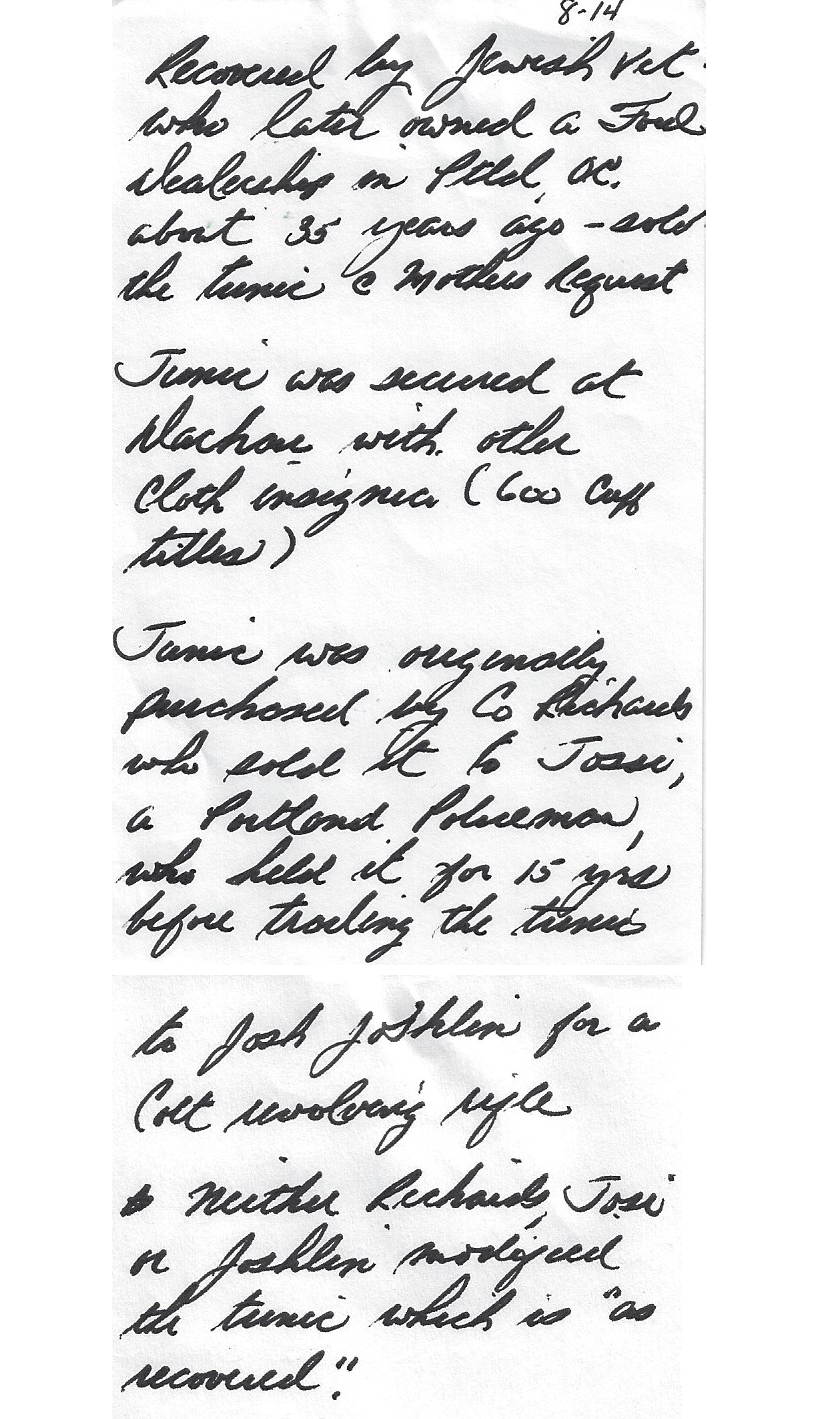 8-14
Recovered by Jewish Vet
who later owned a Ford
Dealership in Ptld, OR.
about 35 years ago - sold
the tunic @ Mothers Request
Tunic was secured at
Dachau with other
Cloth insignia (600 Cuff
titles)
Tunic was originally
purchased by Co Richards
who sold it to Jossi,
a Portland Policeman,
who held it for 15 yrs
before trading the tunic
to Josh Joshlin for a
Colt revolving rifle
Neither Richards, Josi
or Joshlin modified
the tunic which is "as
recovered".